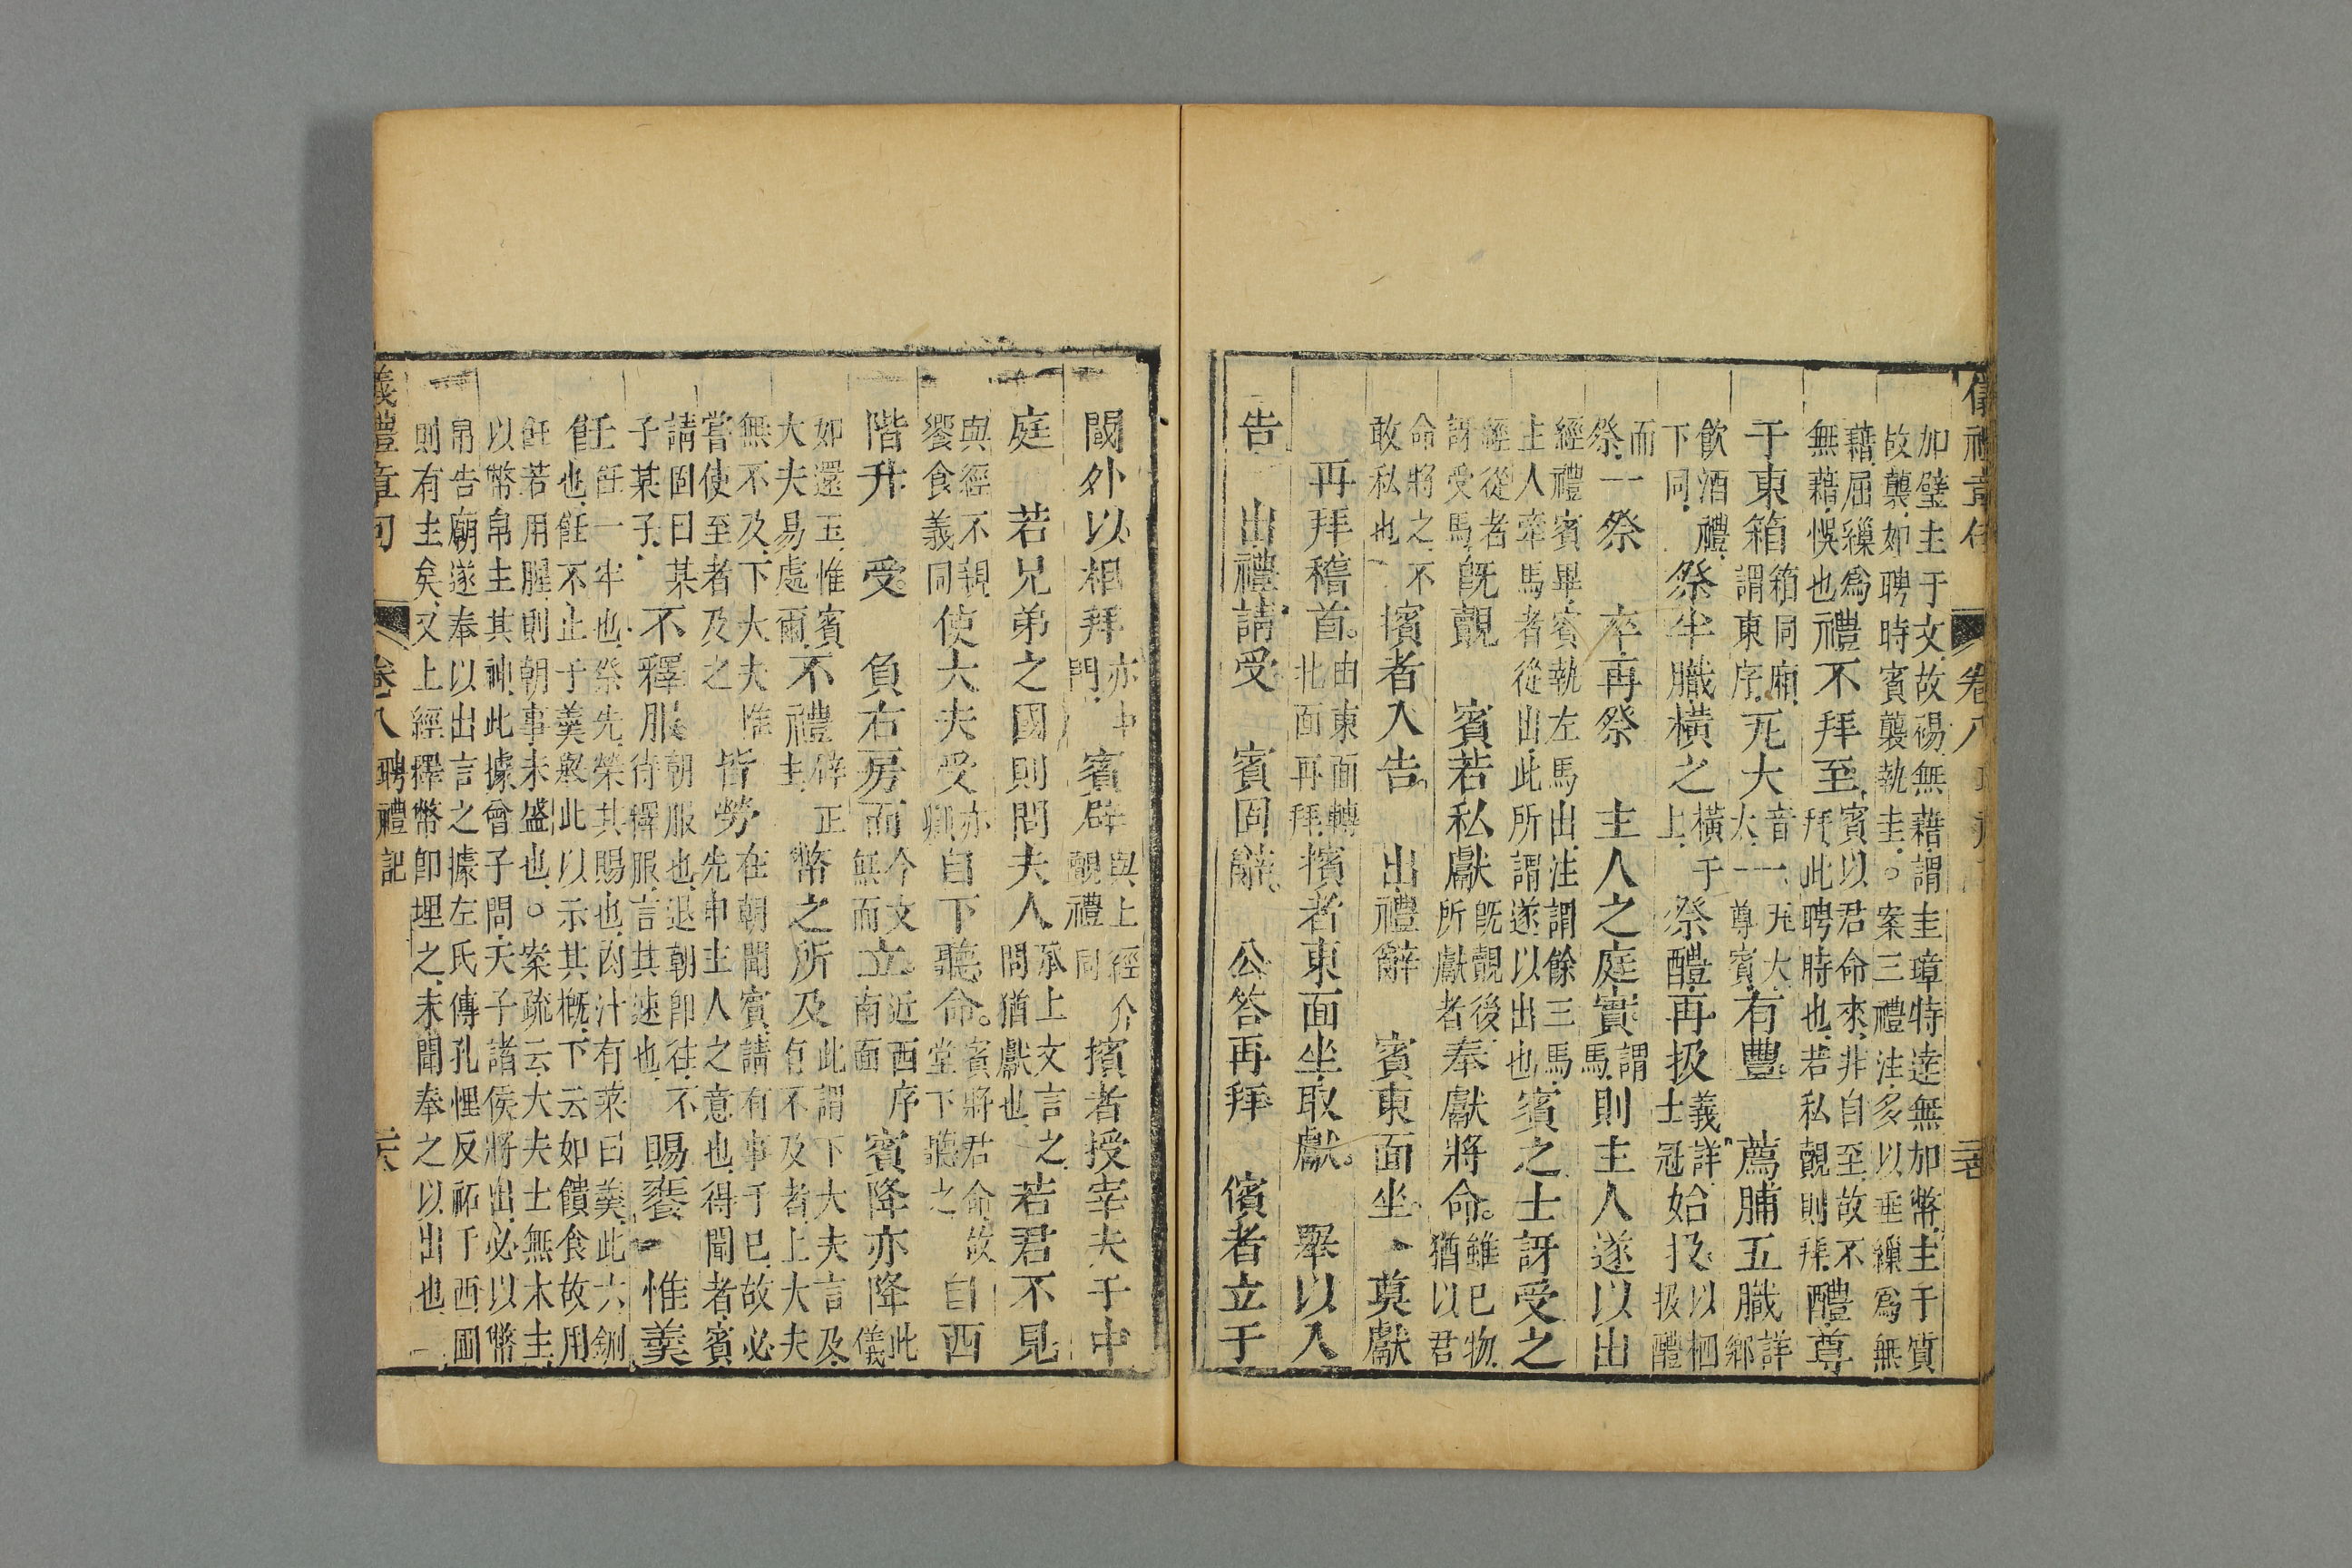 卷八
加璧主于文故裼無藉謂圭璋特達無加幣主于質
故襲如聘時賓襲執圭。案三禮注多以垂繅爲無
藉屈繅爲無藉悞也禮不拜至賓以君命來非自至故不拜此聘時也若私覿則拜醴尊
于東箱箱同廂謂東序瓦大音太一瓦大一尊賓有豐 薦脯五膱詳鄉
飲酒禮下同祭半膱橫之橫于上祭醴再扱義詳士冠始扱以柶扱醴
而祭一祭 卒再祭 主人之庭實謂馬則主人遂以出
經禮賓畢賓執左馬出注謂餘三馬主人牽馬者從出此所謂遂以出也賓之士訝受之
經從者訝受馬既覿 賓若私獻既覿後所獻者奉獻將命。雖己物猶以君
命將之不敢私也擯者入告 出禮辭 賓東面坐奠獻
再拜稽首。由東面轉北面再拜擯者東面坐取獻。 舉以入
告 出禮請受 賓固辭 公答再拜 擯者立于
閾外以相拜亦中門賓辟與上經介覿禮同擯者授宰夫于中
庭 若兄弟之國則問夫人承上文言之問猶獻也若君不見
與經不親饗食義同使大夫受亦卿自下聽命。賓將君命故堂下聽之自西
階升 受。 負右房而今文無而立近西序南面賓降亦降此儀
如還玉惟賓大夫易處爾不禮辟正主幣之所及此謂下大夫言及有不及者上大夫
無不及下大夫惟嘗使至者及之皆勞在朝聞賓請有事于己故必先申主人之意也得聞者賓
請固曰某子某子不釋服朝服也退朝即往不待釋服言其速也賜饔 惟羹
飪飪一牢也祭先榮其賜也肉汁有菜曰羹此六鉶也飪不止于羹舉此以示其概下云如饋食故用
飪若用腥則朝事未盛也。案疏云大夫士無木主
以幣帛主其神此據曾子問天子諸侯將出必以幣
帛告廟遂奉以出言之據左氏傳孔悝反祏于西圃
則有主矣又上經釋幣即埋之未聞奉之以出也
儀禮章句 卷八 聘禮記